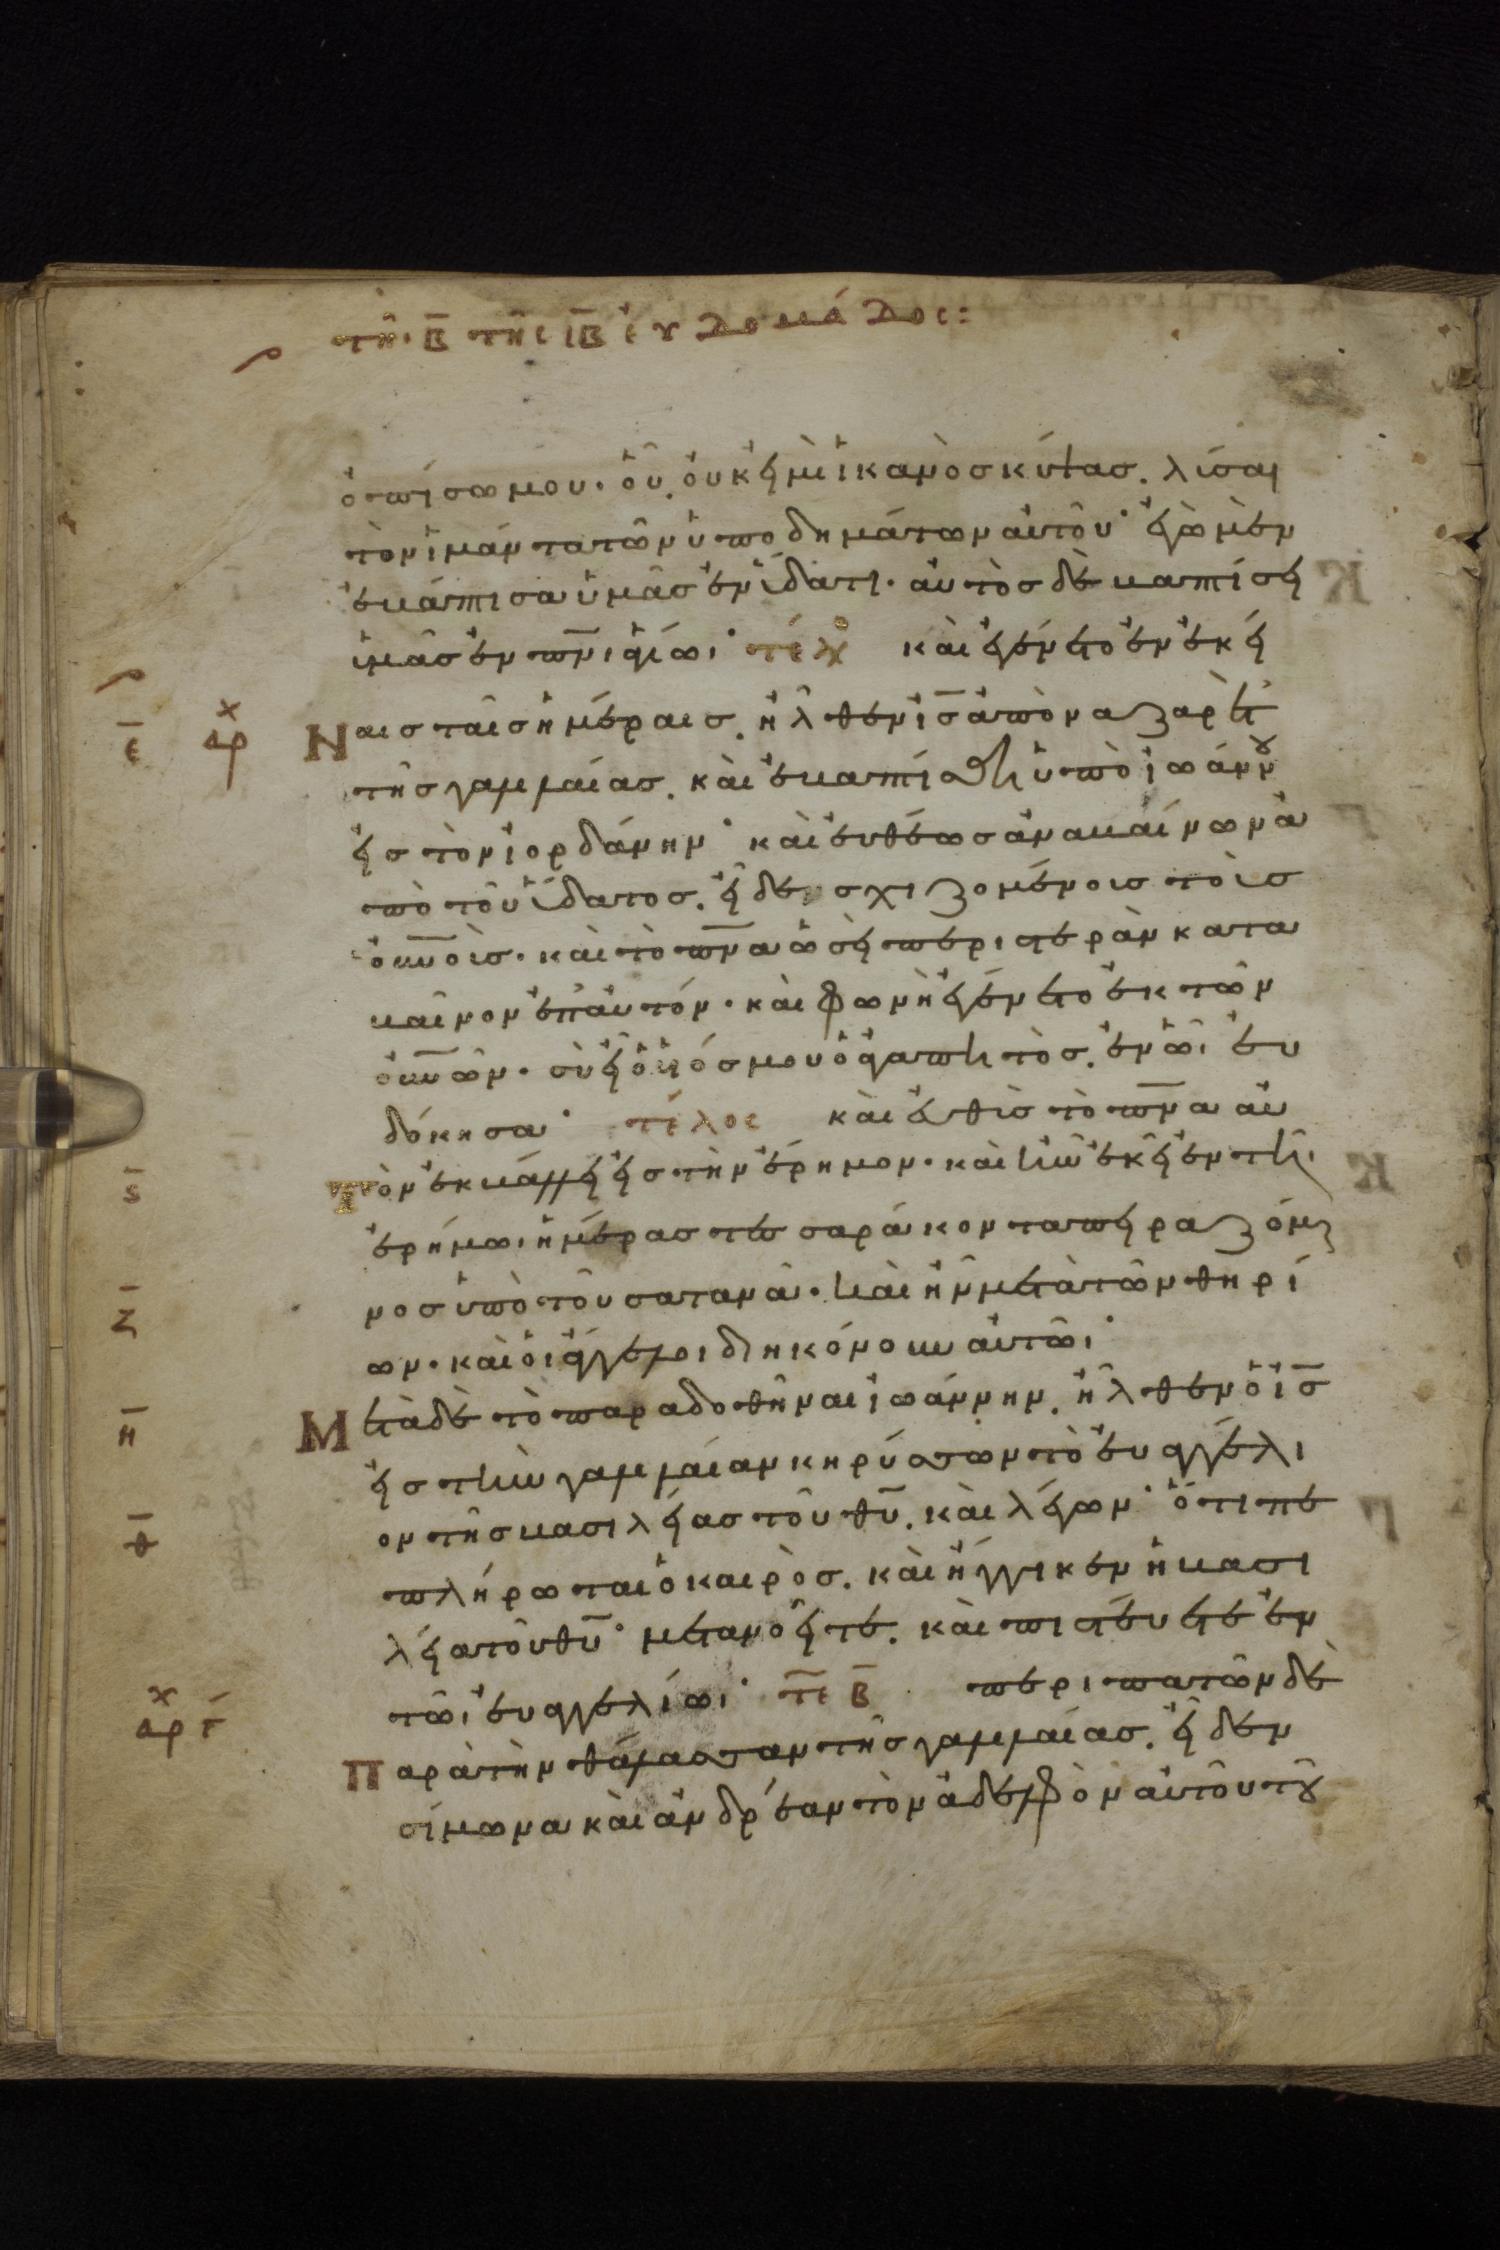 τῆ· Β̅ τῆς ΙΒ̅ ἑυδομάδος:
ὀπίσω μου· οὗ, οὐκ εἰμὶ ἱκανὸσ κύψασ. λῦσαι
τὸν ἱμάντα τῶν ὑποδημάτων αὐτοῦ· ἐγὼ μὲν
ἐβάπτισα ὑμᾶσ ἐν ὕδατι· αὐτὸσ δὲ βαπτίσει
ὑμᾶσ ἐν πν̅ι ἁγίωι· τέλος καὶ ἐγένετο ἐν ἐκεί
Ναισ ταῖσ ἡμέραισ, ἦλθεν ἰσ̅ ἀπὸ ναζαρὲτ
τῆσ γαλιλαίασ. καὶ ἐβαπτίσθη ὑπὸ ἰωάννου
εἰσ τὸν ἰορδάνην· καὶ ἐυθέωσ ἀναβαίνων ἀ
πὸ τοῦ ὕδατοσ. εἶδε σχιζομένουσ τοὺσ
οὐν̅οὺσ· καὶ τὸ πν̅α ὡσεὶ περιστερὰν κατα
βαῖνον ἐπ᾽ αὐτόν· καὶ φωνὴ ἐγένετο ἐκ τῶν
οὐν̅ῶν· σὺ εἶ ὁ υἱόσ μου ὁ ἀγαπητὸσ. ἐν ὧι ἐυ
δόκησα· τέλος καὶ ἐυθὺσ τὸ πν̅α αὐ
Τὸν ἐκβάλλει εἰσ τὴν ἔρημον· καὶ ἦν ἐκεῖ ἐν τῆι
ἐρήμωι ἡμέρασ τεσσαράκοντα πειραζόμε
νοσ ὑπὸ τοῦ σατανᾶ· καὶ ἦν μετὰ τῶν θηρί
ων· καὶ οἱ ἄγγελοι διηκόνουν αὐτῶι·
Μετὰ δὲ τὸ παραδοθῆναι ἰωάννην, ἦλθεν ὁ ἰσ̅
εἰσ τὴν γαλιλαίαν κηρύσσων τὸ ἐυαγγέλι
ον τῆσ βασιλείασ τοῦ θυ̅. καὶ λέγων· ὅτι πε
πλήρωται ὁ καιρὸσ. καὶ ἤγγικεν ἡ βασι
λεία τοῦ θυ̅· μετανοεῖτε. καὶ πιστέυετε ἐν
τῶι ἐυαγγελίωι· τε̅ Β̅ περιπατῶν δὲ
Παρὰ τὴν θάλασσαν τῆσ γαλιλαίασ. εἶδεν
σίμωνα καὶ ἀνδρέαν τὸν ἀδελφὸν αὐτοῦ τοῦ
ε̅
ἀρχ
ς̅
ζ̅
η̅
θ̅
ἀρχ τ